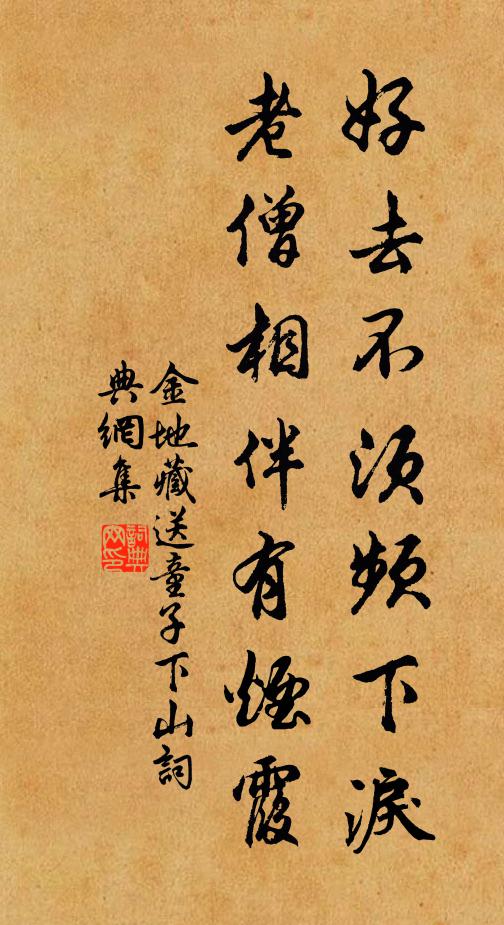 好去不須頻下淚
老僧相伴有煙霞
金地藏送童子下山詞
典網集
詞典
网印